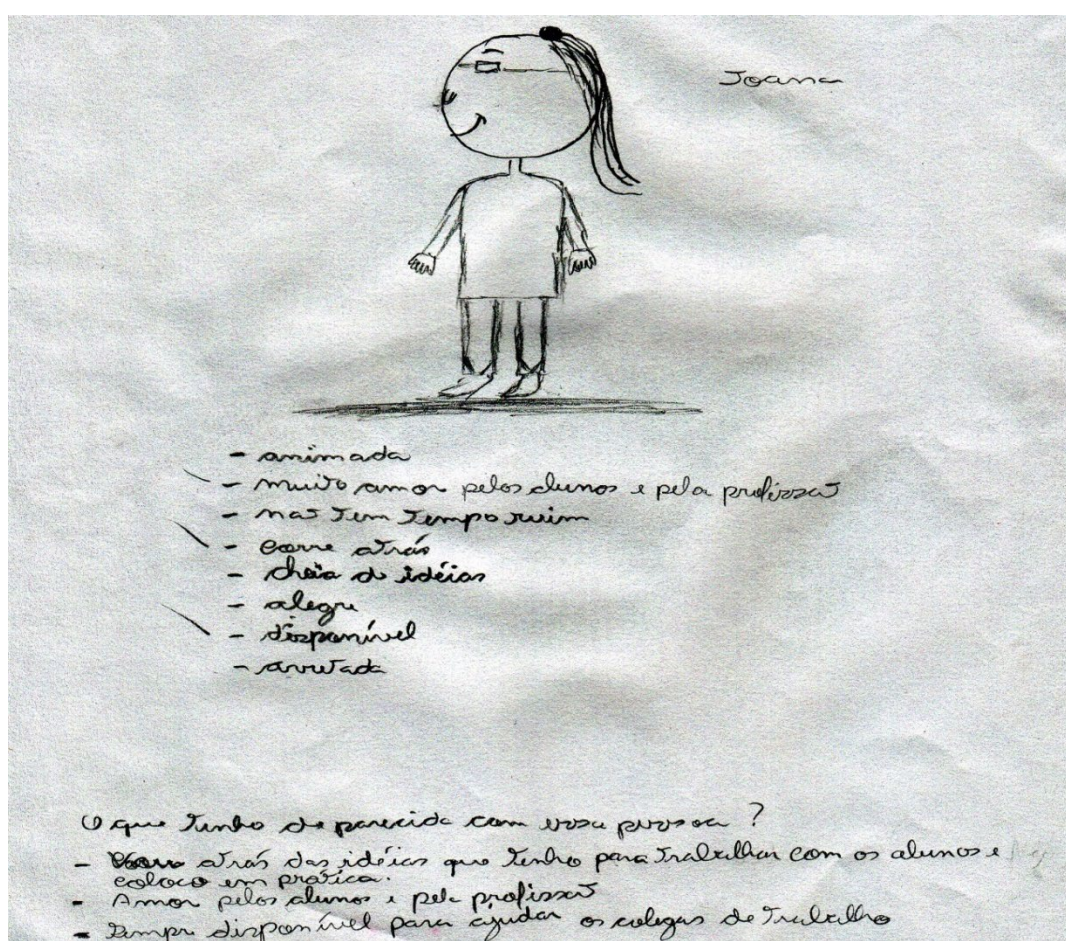 Joana
- animada
- muito amor pelos alunos e pela profissão
- não tem tempo ruim
- corre atrás
- cheia de idéias
- alegre
- disponível
- arretada
O que tenho de parecida com essa pessoa?
- Corro atrás das idéias que tenho para trabalhar com os alunos e
coloco em prática.
- Amor pelos alunos e pela profissão
- Sempre disponível para ajudar os colegas de trabalho